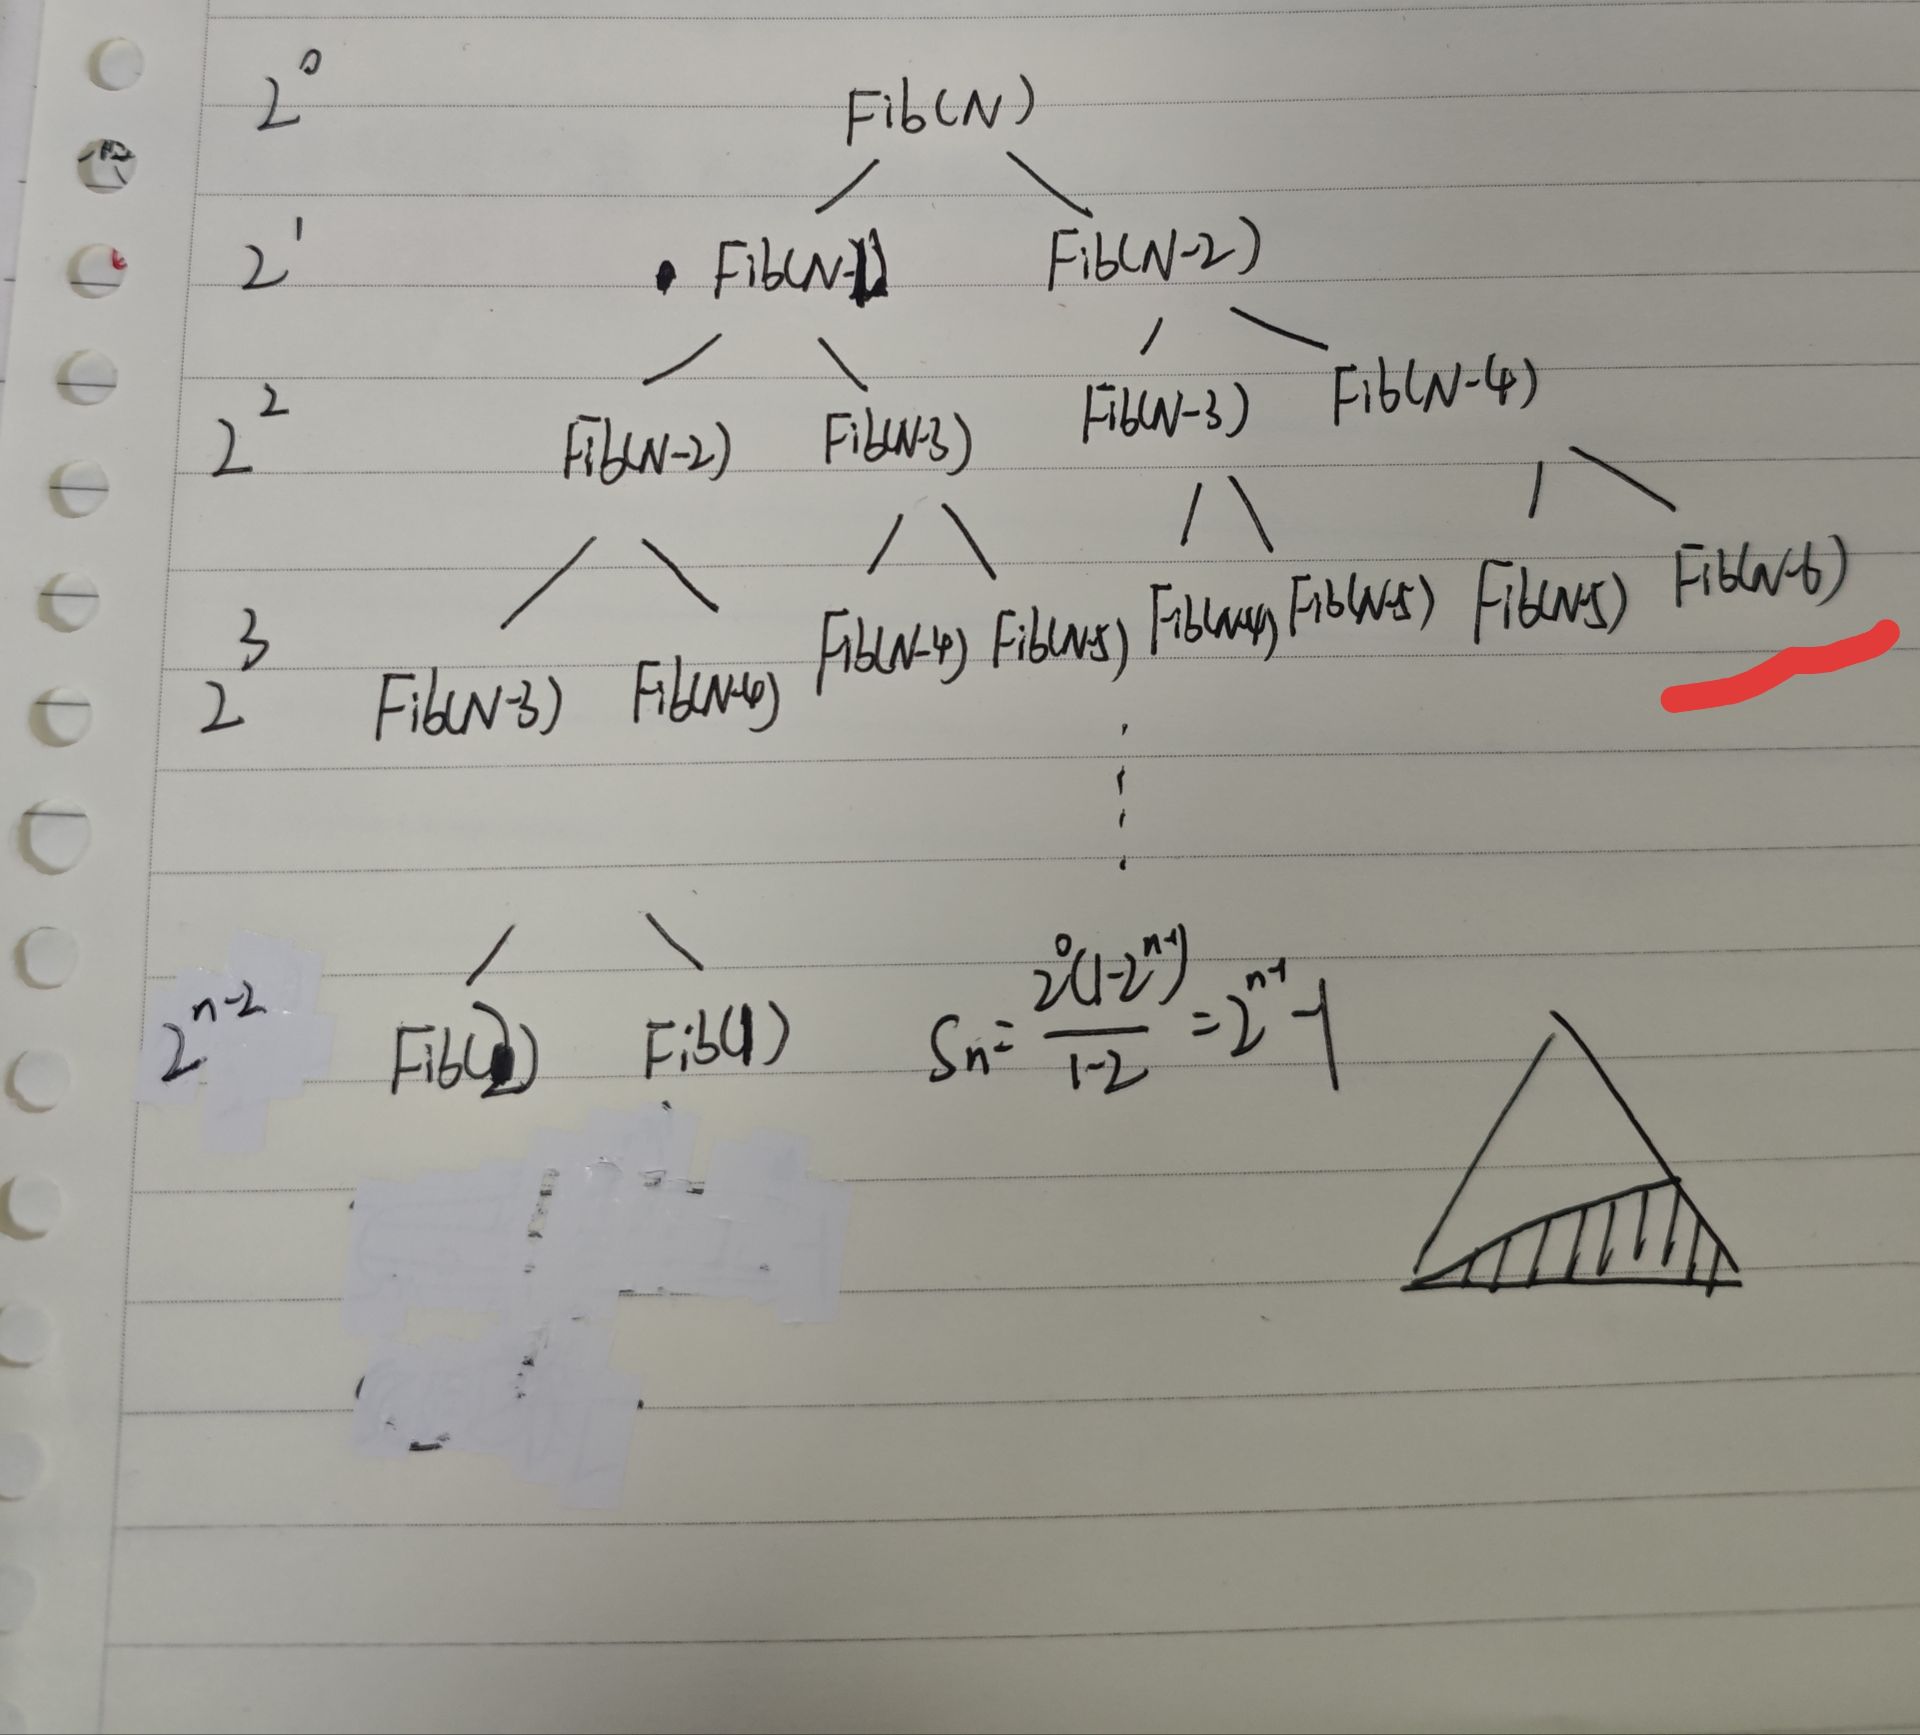 2^0 Fib(N)
2^1 Fib(N-1) Fib(N-2)
2^2 Fib(N-2) Fib(N-3) Fib(N-3) Fib(N-4)
2^3 Fib(N-3) Fib(N-4) Fib(N-4) Fib(N-5) Fib(N-4) Fib(N-5) Fib(N-5) Fib(N-6)
2^{n-2} Fib(2) Fib(1) Sn = \frac{2^0(1-2^{n-1})}{1-2} = 2^{n-1} -1